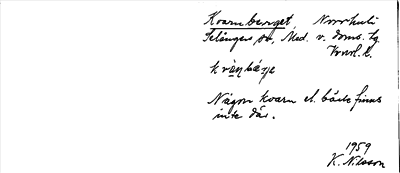 Kvarnberget, Norrhult
Selångers sn, Med. v. doms. tg.
kvạṇbärje
Någon kvarn el. bäck finns
inte där.
1959
K. Nilsson